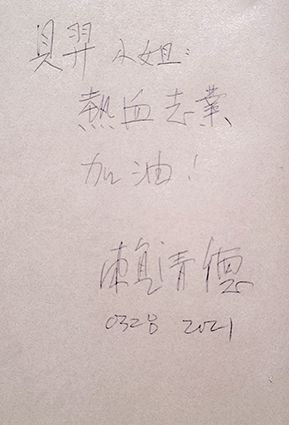 貝羿小姐:
熱血志業
加油!
賴清德
0328 2021